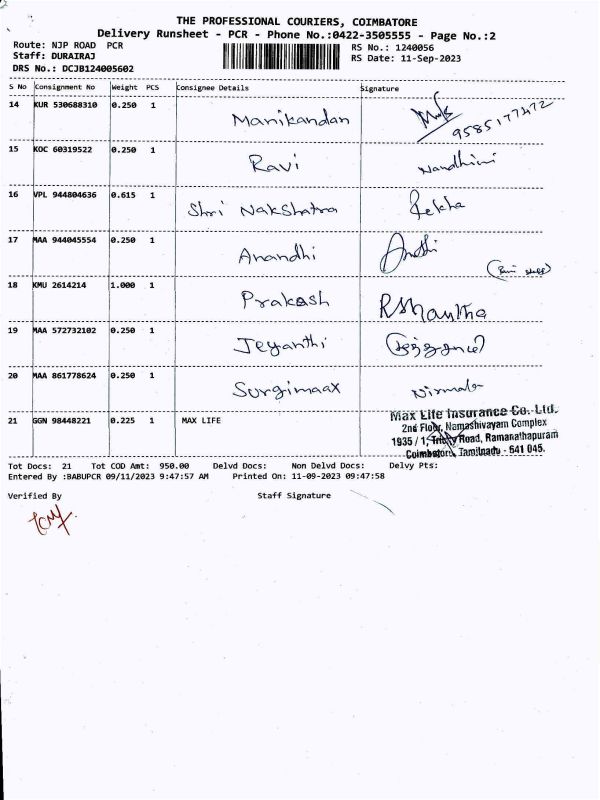 THE PROFESSIONAL COURIERS, COIMBATORE
Delivery Runsheet - PCR - Phone No.:0422-3505555 - Page No.:2
Route: NJP ROAD PCR
RS No.: 1240056
Staff: DURAIRAJ
RS Date: 11-Sep-2023
DRS No.: DCJB124005602
S No Consignment No Weight PCS Consignee Details Signature
14 KUR 530688310 0.250 1 Manikandan
9585177472
15 KOC 60319522 0.250 1 Ravi Nandhini
16 VPL 944804636 0.615 1 Shri Nakshatra Rekha
17 MAA 944045554 0.250 1 Anandhi
18 KMU 2614214 1.000 1 Prakash
19 MAA 572732102 0.250 1 Jeyanthi
20 MAA 861778624 0.250 1 Surgimaax Nirmala
21 GGN 98448221 0.225 1 MAX LIFE
Max Life Insurance Co. Ltd.
2nd Floor, Namashivayam Complex
1935 / 1, Trichy Road, Ramanathapuram
Coimbatore, Tamilnadu - 641 045.
Tot Docs: 21 Tot COD Amt: 950.00 Delvd Docs: Non Delvd Docs: Delvy Pts:
Entered By :BABUPCR 09/11/2023 9:47:57 AM Printed On: 11-09-2023 09:47:58
Verified By Staff Signature